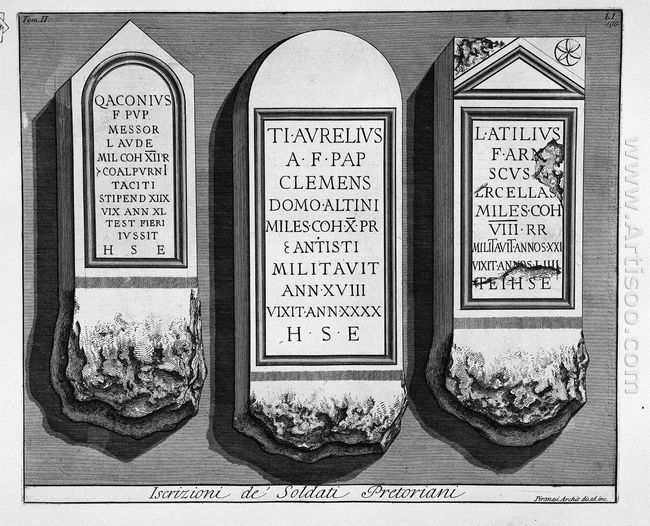 Tom. II.
LI
QACONIVS
F PVP
MESSOR
LAVDE
MIL COH X̅I̅I̅ P R
COALPVRNI
TACITI
STIPEND XIIX
VIX ANN XL
TEST FIERI
IVSSIT
H S E
TI·AVRELIVS
A·F·PAP
CLEMENS
DOMO·ALTINI
MILES·COH·X̅·PR
ANTISTI
MILITAVIT
ANN·XVIII
VIXIT·ANN·XXXX
H·S·E
L·ATILIVS
F·ARN
SCVS
ERCELLAS
MILES·COH
V̅I̅I̅I̅·RR
MILITAVIT·ANNOS·XXI
VIXIT·ANNOS·LIIII
TEI·H·S·E
Iscrizioni de' Soldati Pretoriani
Piranesi Archit. dis. ed inc.
www.Artisoo.com